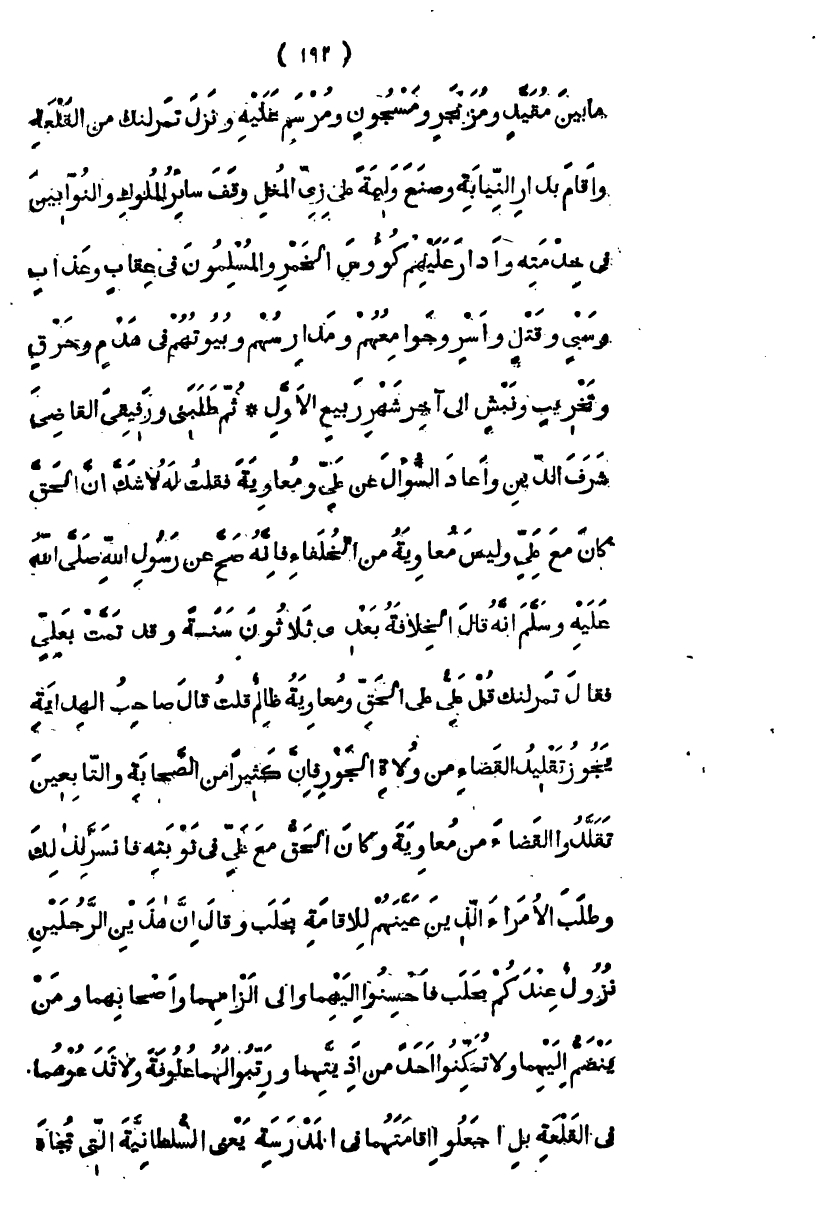 ( ١٩٢ )
مَا بينَ مُقَيَّدٍ ومُزَنْجَرٍ ومَسْجُونٍ ومُرْسَمٍ عَلَيْهِ ونَزَلَ تمَرلنك من القَلْعَةِ
واَقامَ بدارِ النِّيابَةِ وصنَعَ وَلِيمَةً على زِيِّ المُغلِ وقَفَ سائِرُ المُلوكِ والنُوّابينَ
فى خِدْمَتِه واَدارَ عَلَيْهِمْ كُوُوسَ الخَمْرِ والمُسْلِمُونَ فى عِقابٍ وعَذابٍ
وسَبْيٍ وقَتْلٍ واَسْرٍ وجَوامِعُهُمْ ومَدارِسُهُمْ وبُيُوتُهُمْ فى هَدْمٍ وحَرْقٍ
وتَخْرِيبٍ ونَبْشٍ الى آخِرِ شَهْرِ رَبيعِ الاَوَّلِ * ثُمَّ طَلَبَنِى ورَفِيقِىَ القاضِىَ
شَرَفَ الدّينِ واَعادَ السُّؤَالَ عَن عَلِيٍّ ومُعاوِيَةَ فقلتُ لَهُ لاشَكَّ انَّ الحَقَّ
كانَ مَعَ عَلِيٍّ وليسَ مُعاوِيَةُ من الخُلَفاءِ فاِنَّهُ صَحَّ عن رَسُولِ اللّهِ صَلَّى اللّهُ
عَلَيْهِ وسَلَّمَ انَّهُ قالَ الخِلافَةُ بَعْدِى ثلاثُونَ سَنَةً وقد تمّتْ بعَلِيٍّ
فقالَ تمَرلنك قُلْ عَلِيٌّ على الحَقِّ ومُعاوِيَةُ ظالِمٌ قلتُ قالَ صاحِبُ الهِدايَةِ
يَجُوزُ تَقْلِيدُ القَضاءِ من وُلاةِ الجَوْرِ فاِنَّ كَثِيرًا من الصَّحابَةِ والتّابِعِينَ
تَقَلَّدُوا القَضاءَ من مُعاوِيَةَ وكانَ الحَقُّ معَ عَلِيٍّ فى نَوْبَتِه فانسَرَّ لذٰلِكَ
وطلَبَ الاُمَراءَ الّذينَ عَيَّنَهُمْ لِلاِقامَةِ بحَلَب وقالَ اِنَّ هٰذَيْنِ الرَّجُلَيْنِ
نُزُولٌ عِنْدَكُمْ بحَلَب فاَحْسِنُوا اِلَيْهِما والى اَلْزامِهِما واَصْحابِهِما ومَنْ
يَنْضَمُّ اِلَيْهِما ولاتُمَكِّنُوا اَحَدًا من اَذِيَّتِهِما ورَتِّبُوا لَهُما عُلُوفَةً ولاتَدَعُوهُما
فى القَلْعَةِ بل اجعَلُوا اِقامَتَهُما فى المَدْرَسَةِ يَعْنى السُّلطانِيَّةَ الّتى تُجاهَ